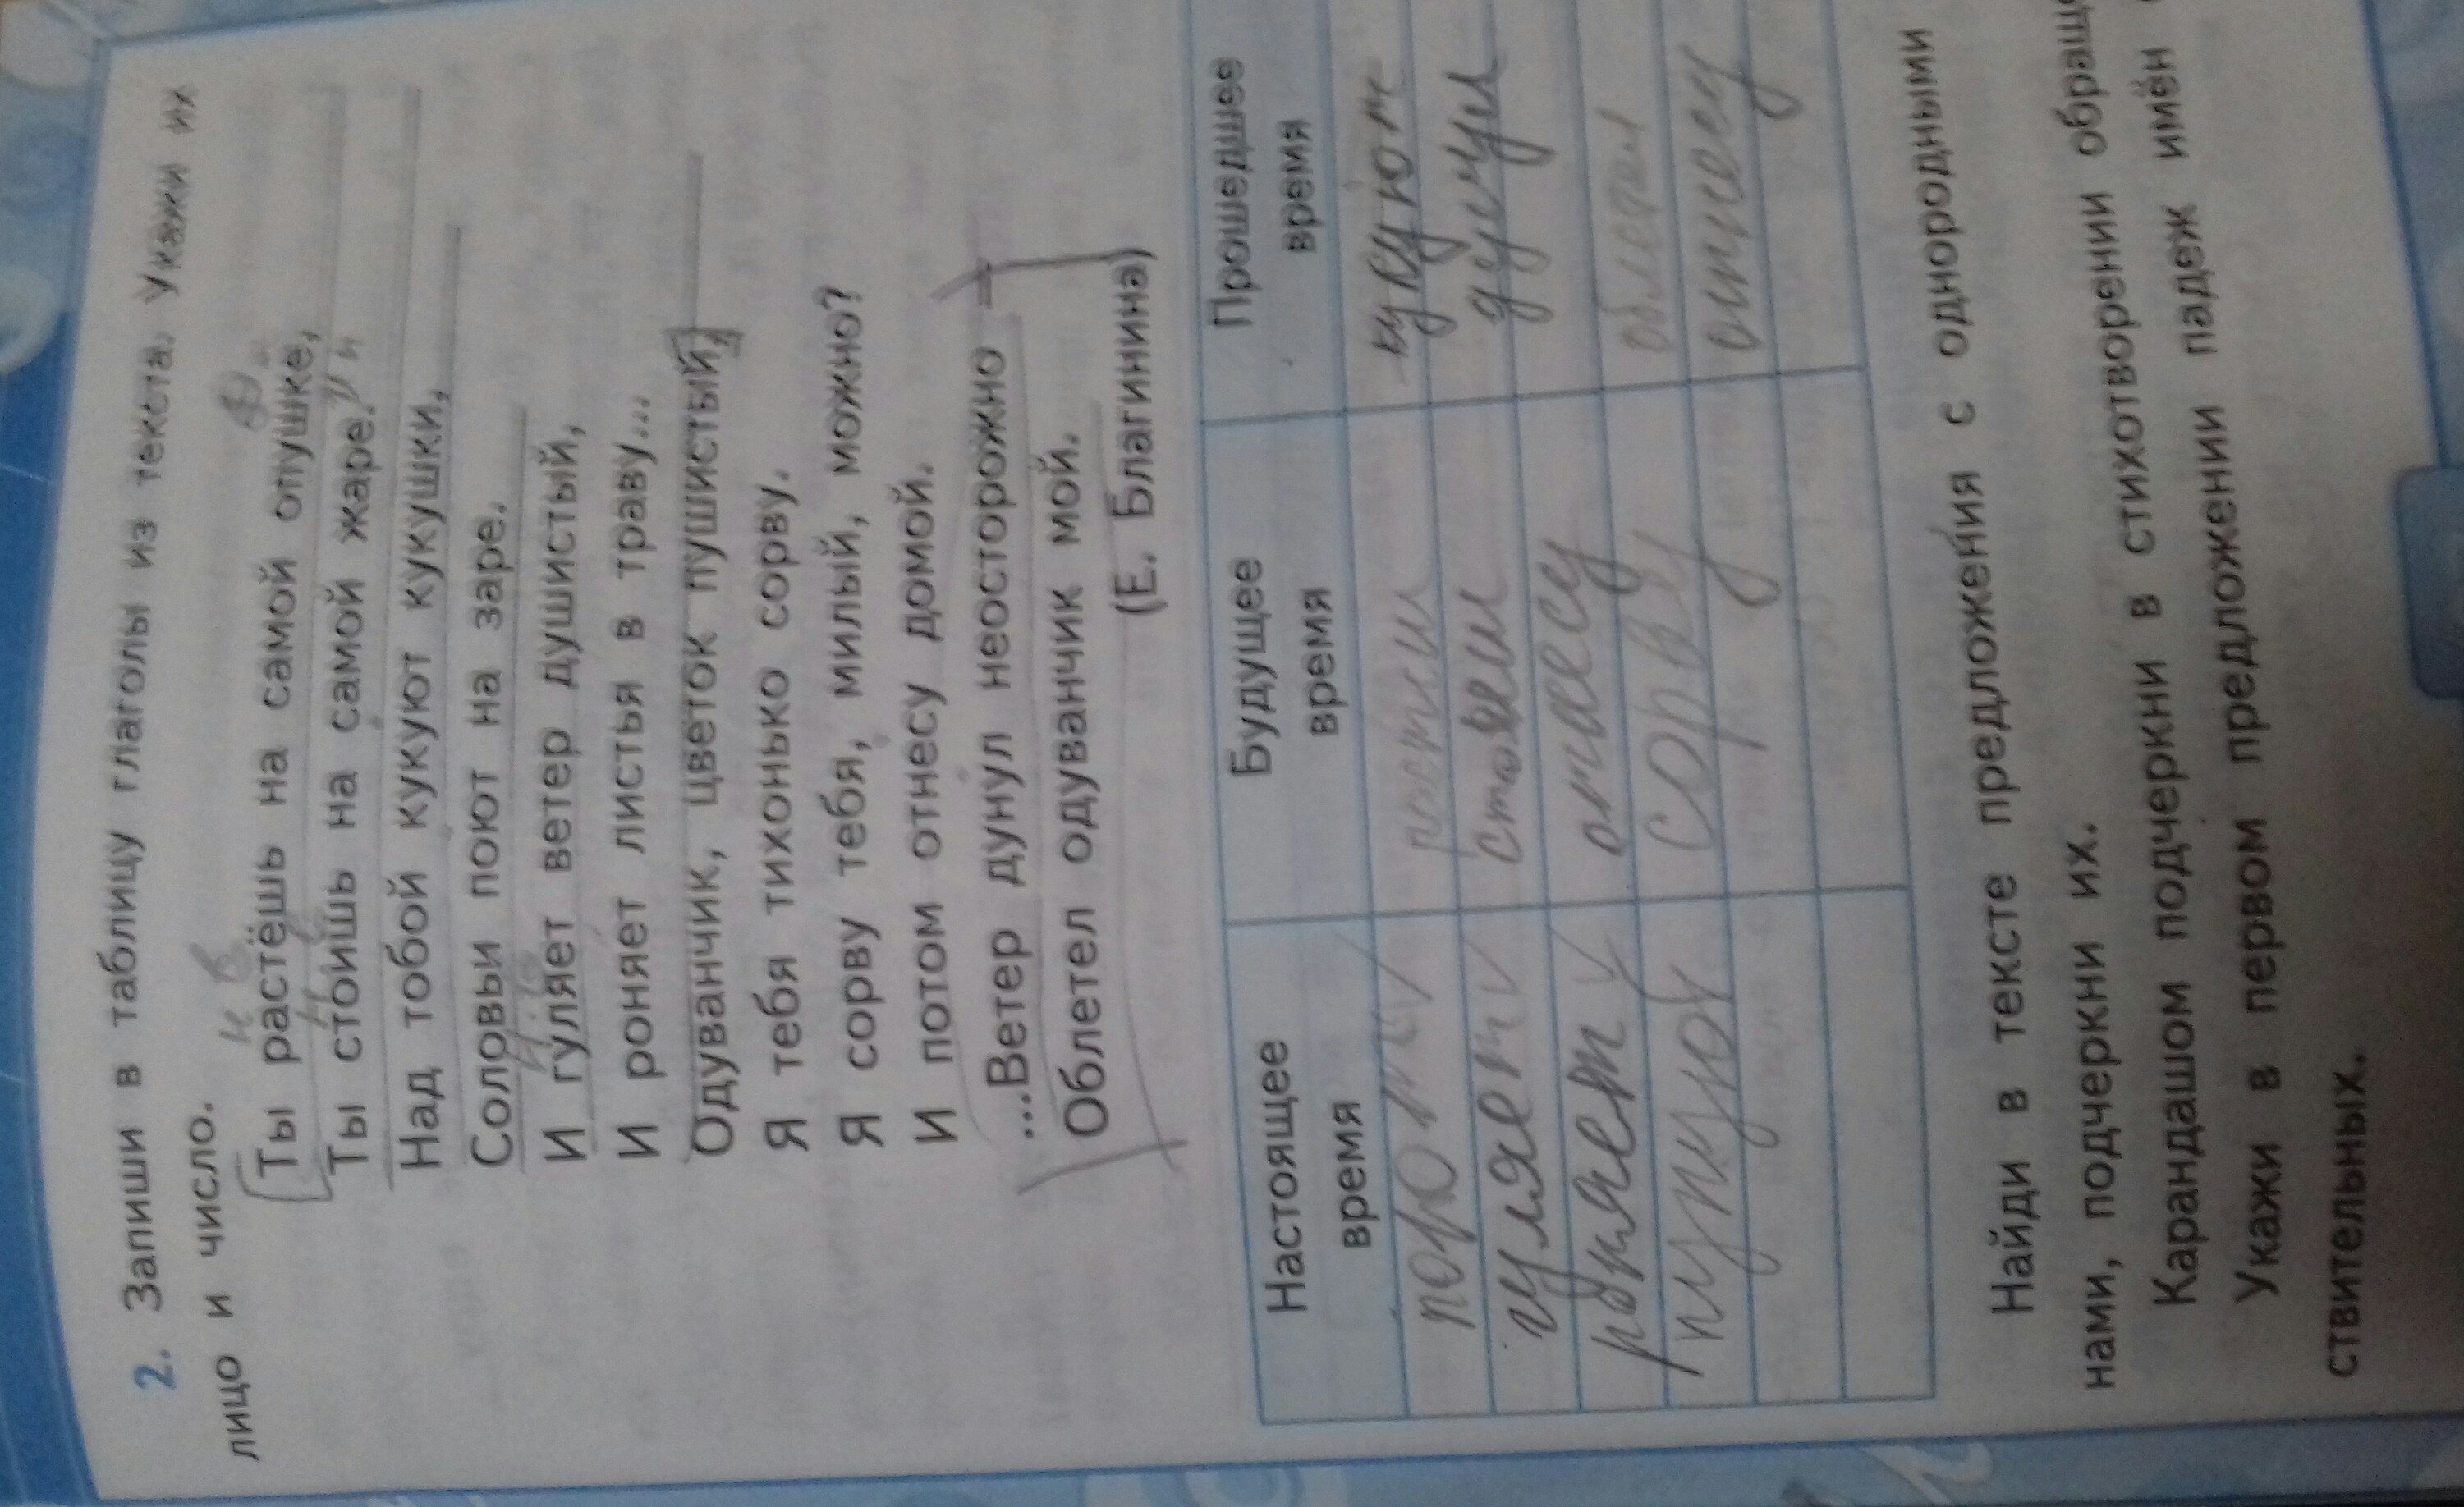 2. Запиши в таблицу глаголы из текста. Укажи их
лицо и число.
Ты растёшь на самой опушке,
Ты стоишь на самой жаре.
Над тобой кукуют кукушки,
Соловьи поют на заре.
И гуляет ветер душистый,
И роняет листья в траву...
Одуванчик, цветок пушистый,
Я тебя тихонько сорву.
Я сорву тебя, милый, можно?
И потом отнесу домой.
...Ветер дунул неосторожно –
Облетел одуванчик мой.
(Е. Благинина)
Настоящее время Будущее время Прошедшее время
кукуют
гуляет дунул
роняет отнесу
сорву отнесу
Найди в тексте предложения с однородными
нами, подчеркни их.
Карандашом подчеркни в стихотворении обращ
Укажи в первом предложении падеж имён
ствительных.